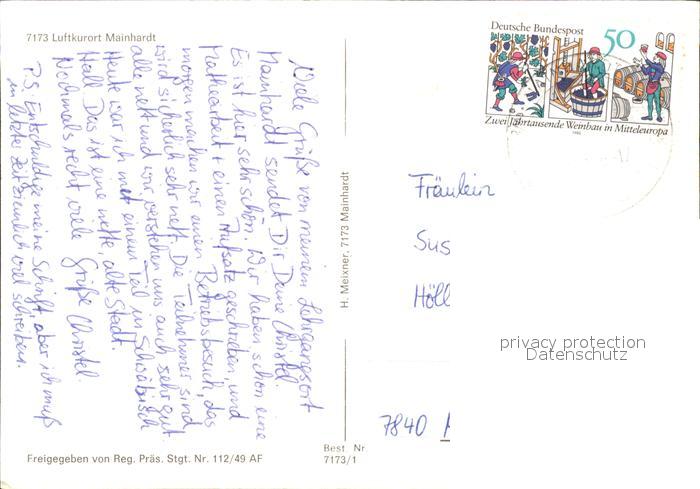 7173 Luftkurort Mainhardt
Viele Grüße von meinem Lehrgangsort
Mainhardt sendet Dir Deine Christel.
Es ist hier sehr schön. Wir haben schon eine
Mathearbeit + einen Aufsatz geschrieben, und
morgen machen wir einen Betriebsbesuch, das
wird sicherlich sehr nett. Die Teilnehmer sind
alle nett und wir verstehen uns auch sehr gut.
Heute war ich mit einem Teil in Schwäbisch
Hall. Das ist eine nette, alte Stadt.
Nochmals recht viele Grüße Christel.
P.S. Entschuldige meine Schrift, aber ich muß
in letzter Zeit ziemlich viel schreiben.
Freigegeben von Reg. Präs. Stgt. Nr. 112/49 AF
H. Meixner, 7173 Mainhardt
Best. Nr
7173/1
Deutsche Bundespost
50
Zwei Jahrtausende Weinbau in Mitteleuropa
1980
Fräulein
Sus
Höll
privacy protection
Datenschutz
7840